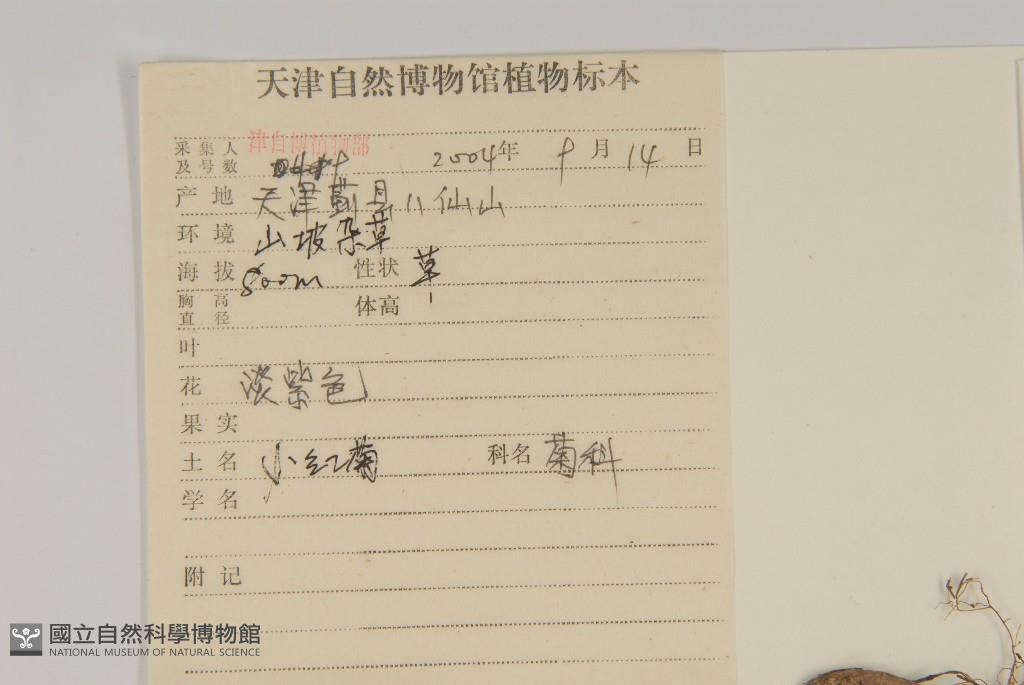 天津自然博物馆植物标本
津自博植物部
采集人
及号数 2004年 9月14日
产地 天津蓟县八仙山
环境 山坡杂草
海拔 800m 性状 草
胸高
直径 体高
叶
花 淡紫色
果实
土名 小红菊 科名 菊科
学名
附记
國立自然科學博物館
NATIONAL MUSEUM OF NATURAL SCIENCE